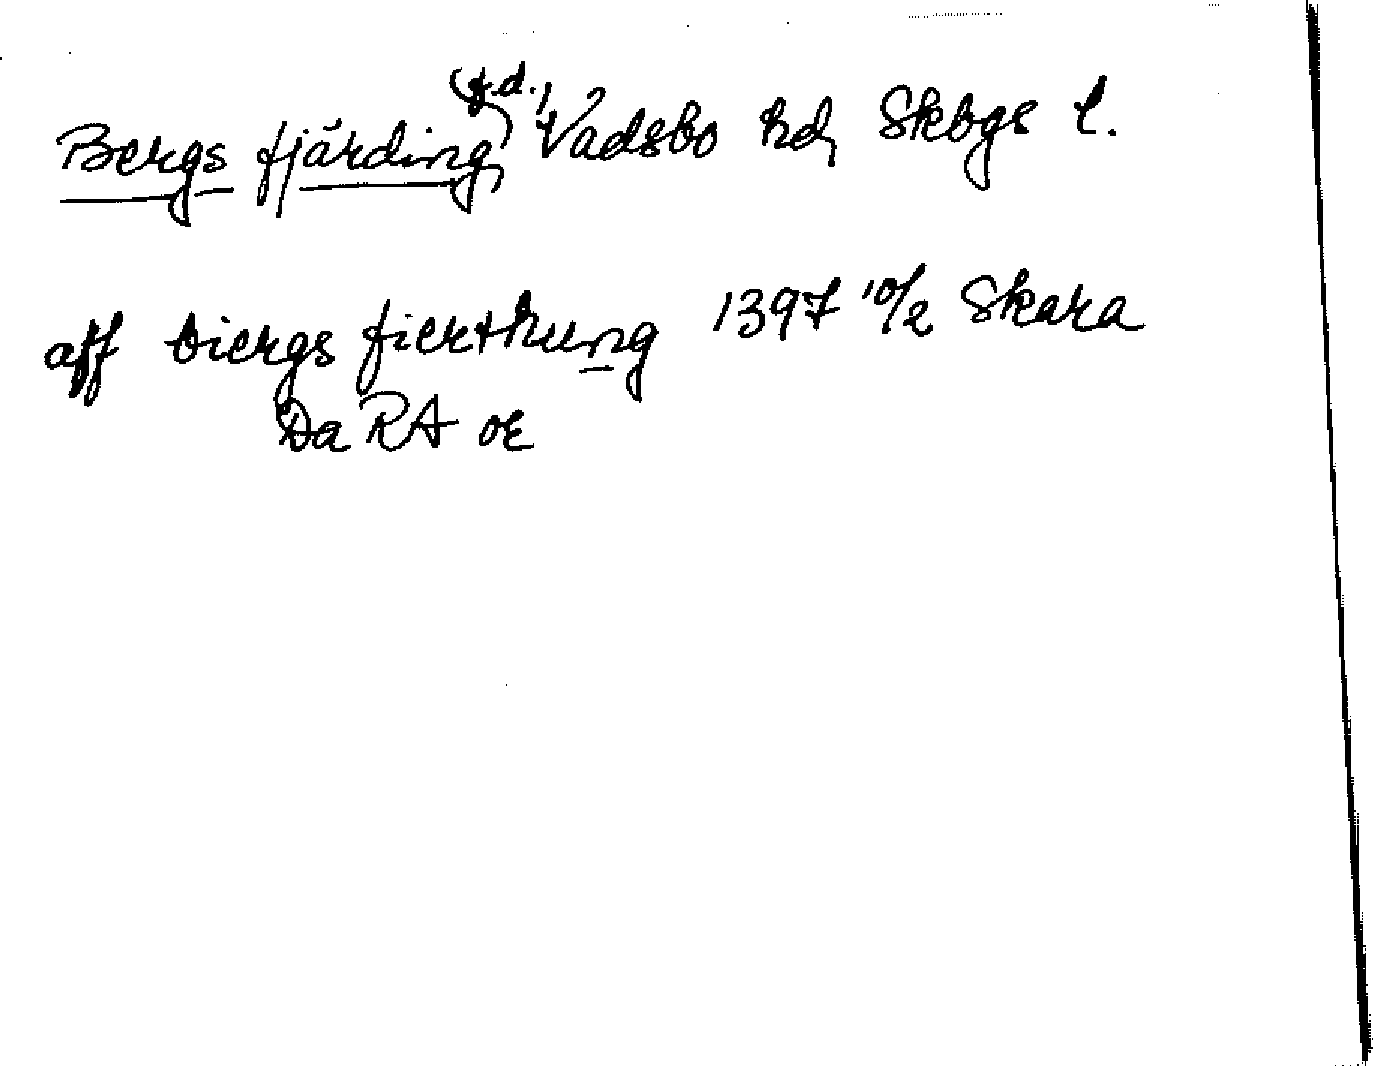 Bergs fjärding (f.d.), Vadsbo hd, Skbgs l.
aff biergs fierthung 1397 10/2 Skara
Da RA or